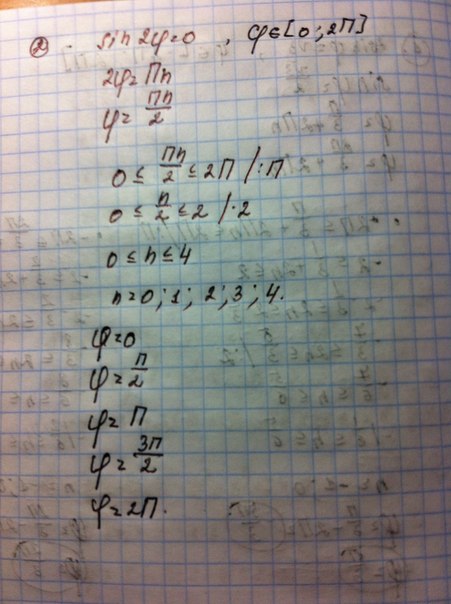 ② sin 2φ=0 , φ∈[0; 2П]
2φ=Пn
φ= Пn/2
0 ≤ Пn/2 ≤ 2П /:П
0 ≤ n/2 ≤ 2 /·2
0 ≤ n ≤ 4
n=0; 1; 2; 3; 4.
φ=0
φ= П/2
φ= П
φ= 3П/2
φ= 2П.